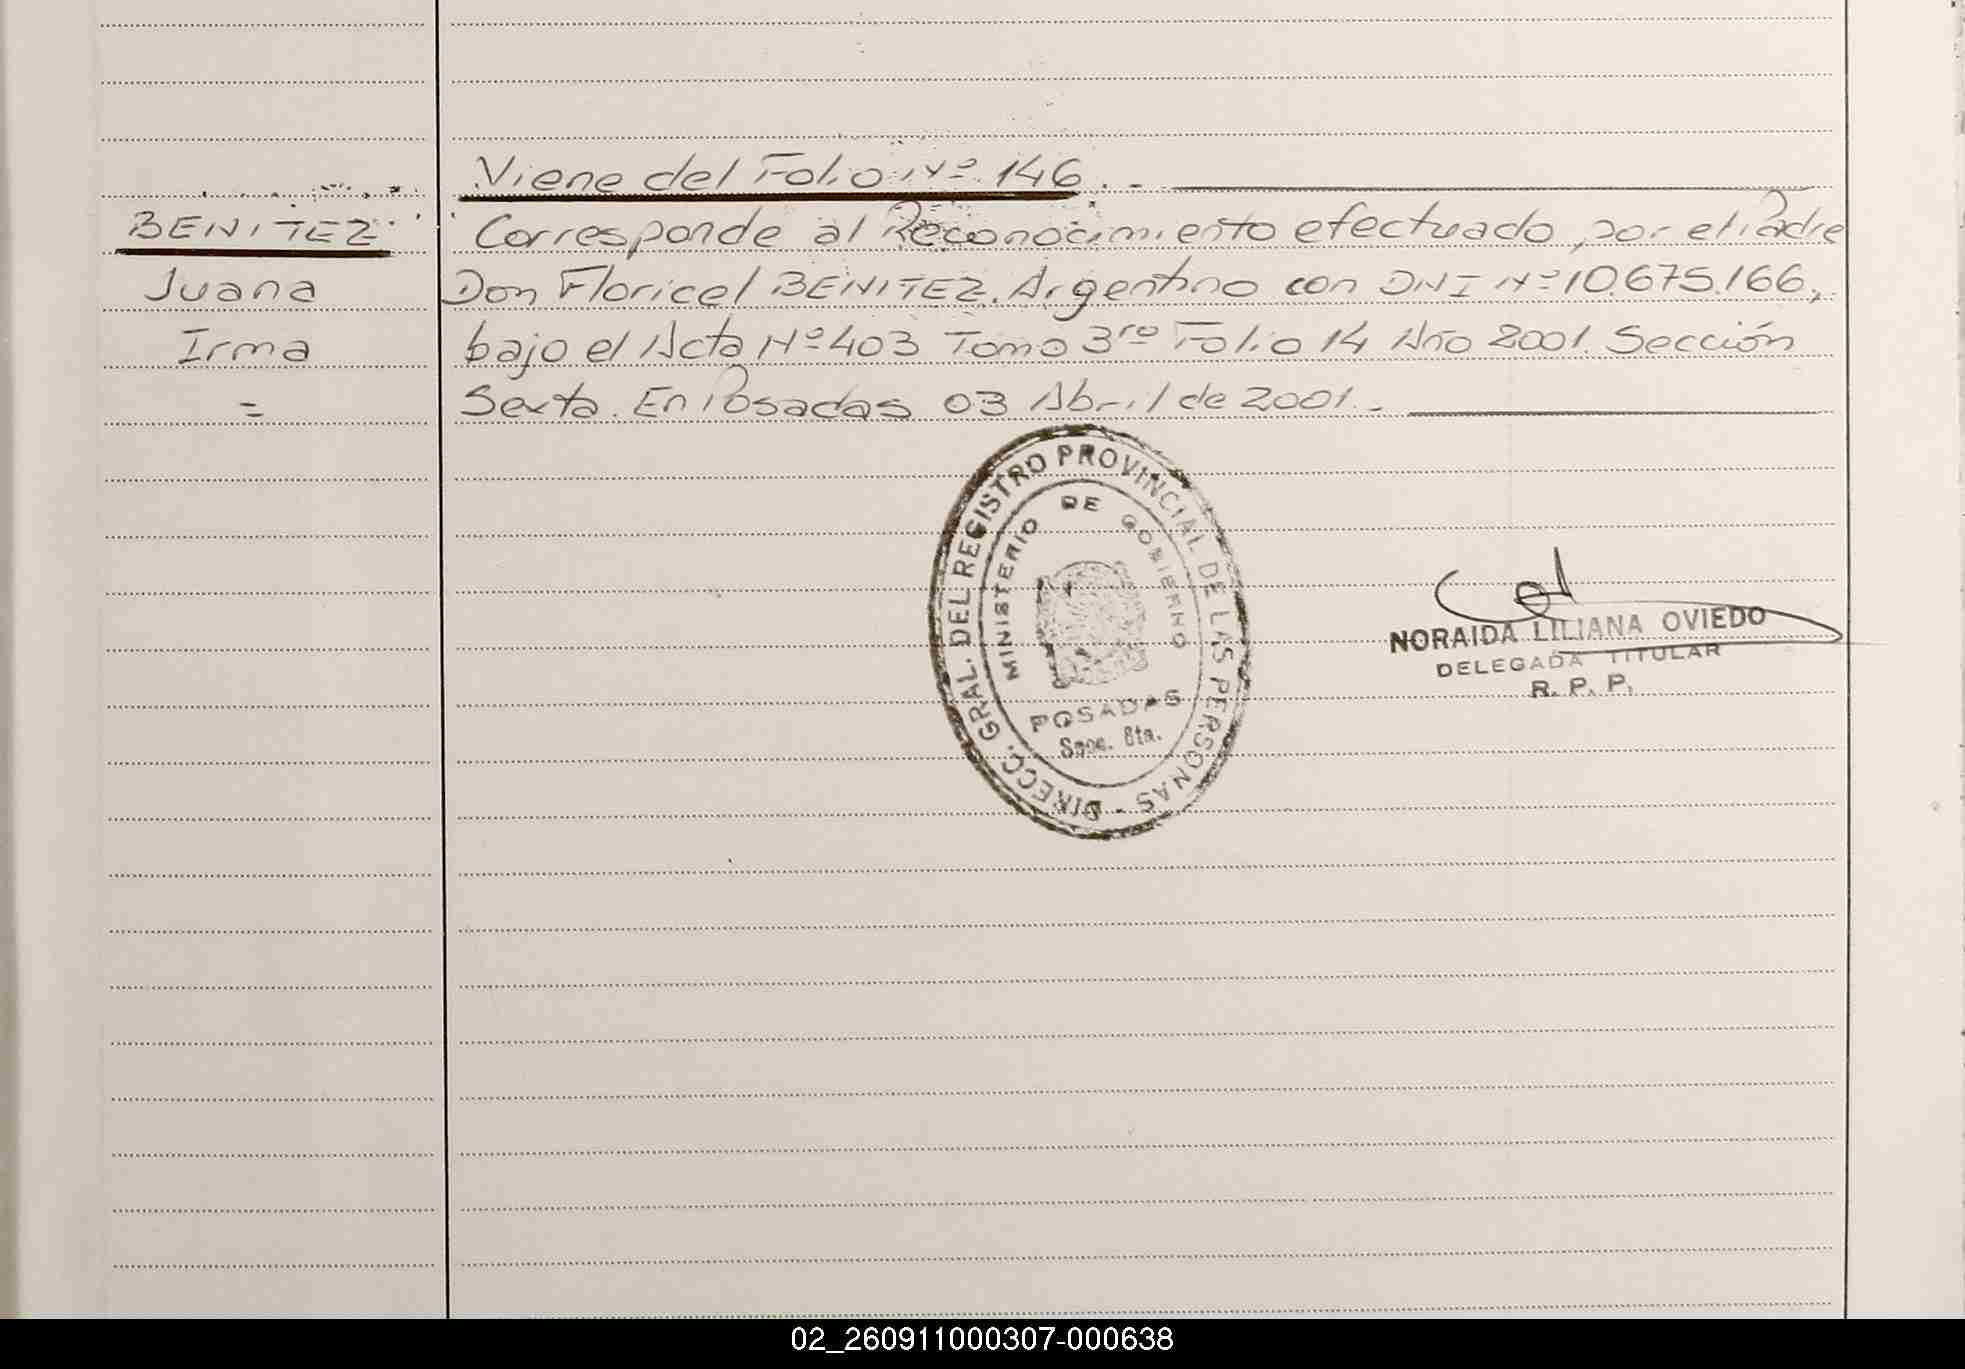 Viene del Folio Nº 146. -
BENITEZ
Corresponde al Reconocimiento efectuado, por el Padre
Juana
Don Floricel BENITEZ. Argentino con DNI Nº 10.675.166,
Irma
bajo el Acta Nº 403 Tomo 3ro Folio 14 Año 2001. Sección
=
Sexta. En Posadas 03 Abril de 2001. -
DIRECC. GRAL. DEL REGISTRO PROVINCIAL DE LAS PERSONAS -
MINISTERIO DE GOBIERNO
POSADAS
6ta.
NORAIDA LILIANA OVIEDO
DELEGADA TITULAR
R. P. P.
02_260911000307-000638